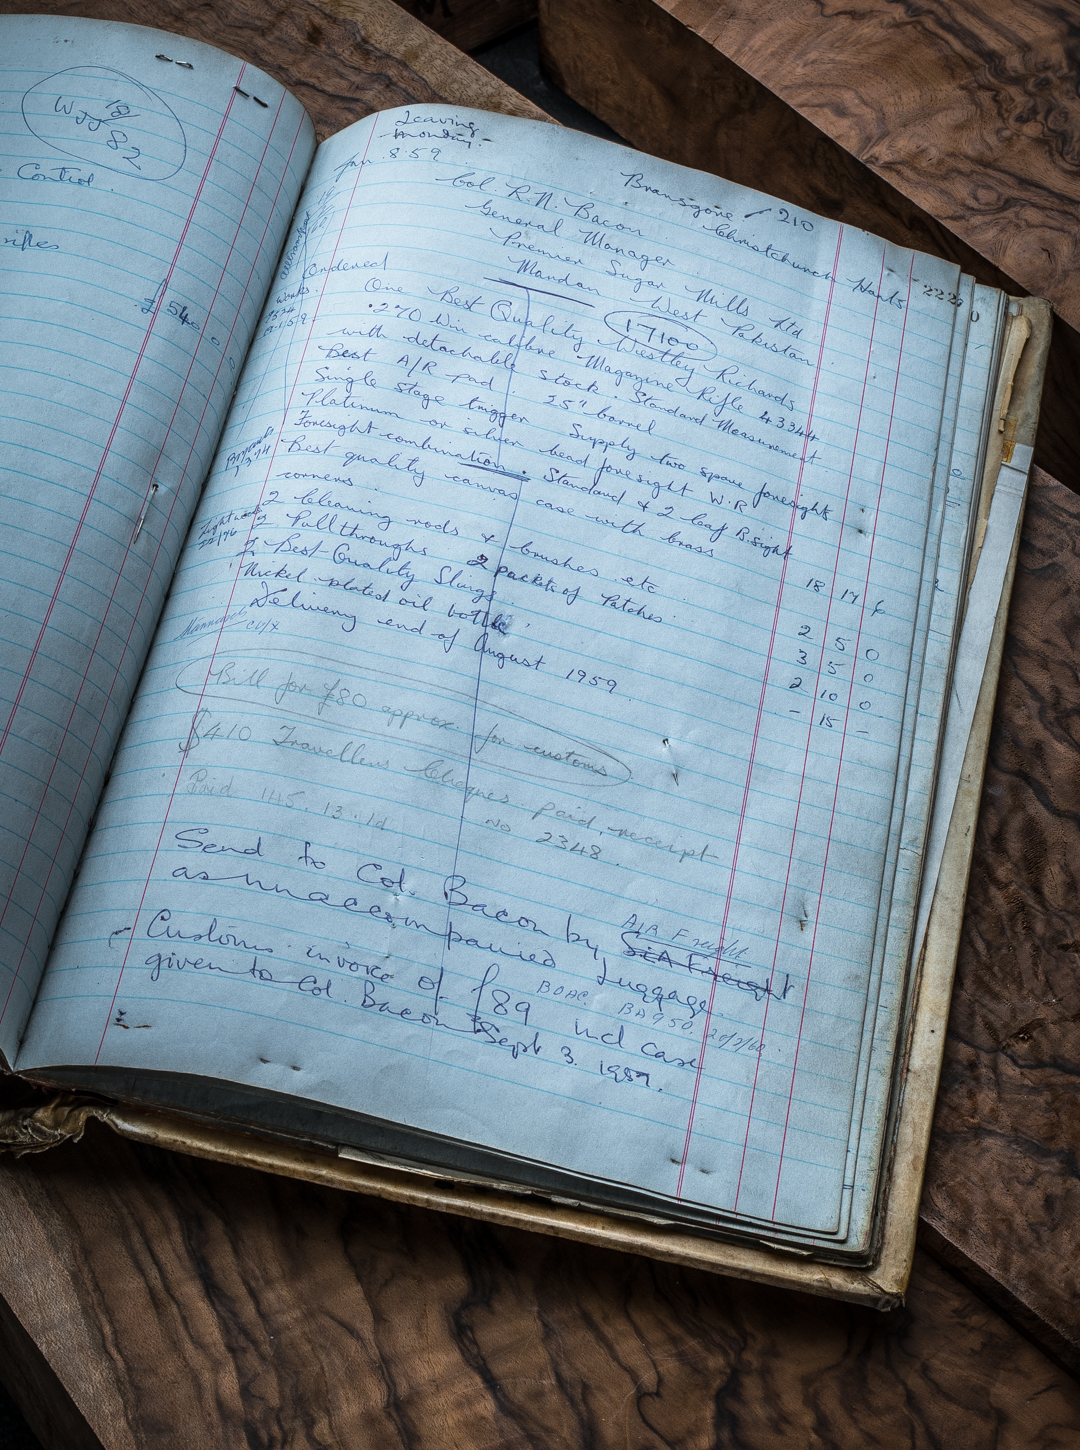 W J J 82
Control.
rifles
£540 0 0
Leaving
Monday.
Jan. 8. 59.
Bransgore / 210
Col. R. N. Bacon. Christchurch Hants
General Manager
Premier Sugar Mills Ltd
Mardan West Pakistan
222
17100
Ordered One Best Quality Westley Richards
.270 Win calibre Magazine Rifle
with detachable stock. Standard Measurement
Best A/R pad 25" barrel
Single stage trigger Supply two spare foresights
Platinum or silver bead foresight W.R
Foresight combination. Standard & 2 leaf R.sight
Best quality canvas case with brass
corners. 18 17 6
2 Cleaning rods & brushes etc 2 5 0
2 Pull throughs. 2 packts of Patches. 3 5 0
2 Best Quality Slings 2 10 0
Nickel plated oil bottle - 15 -
Delivery end of August 1959
Bill for £80 approx. for customs
$410 Travellers Cheques paid, receipt
Paid 145. 13. 1d No 2348.
AIR Freight
Send to Col. Bacon by SEA Freight
as unaccompanied luggage.
BOAC. BA950 20/2/60.
Customs invoice of £89 incl case
given to Col. Bacon Sept 3. 1959.